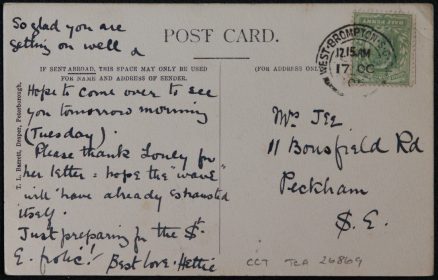 So glad you are
getting on well a
POST CARD.
IF SENT ABROAD, THIS SPACE MAY ONLY BE USED
FOR NAME AND ADDRESS OF SENDER.
(FOR ADDRESS ONLY
Hope to come over to see
you tomorrow morning
(Tuesday).
Please thank Lonly for
her letter = hope the "wave"
will have already exhausted
itself.
Just preparing for the St
E. frolic! Best love. Hettie
T. L. Barrett, Draper, Peterborough.
WEST-BROMPTON
12.15 AM
17 OC
HALFPENNY
Mrs Jez
11 Bonsfield Rd
Peckham
S. E.
CCT TCA 26869